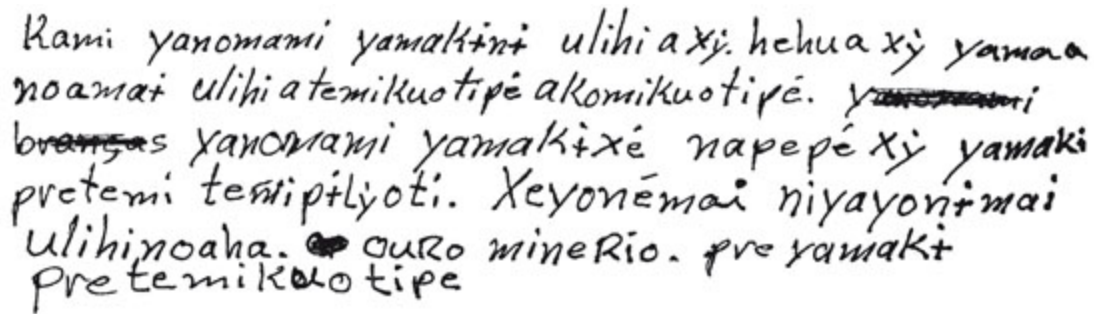 Kami yanomami yamakɨnɨ ulihi a xỳ. hehu a xỳ yamaa
noamaɨ ulihi a temi kuo tɨpé a komi kuo tɨpé.
yanomami yamakɨ xé napepé xỳ yamaki
pretemi temipɨlỳoti. Xeyonémai niyayonɨmai
ulihinoaha. ouRo mineRio. pre yamakɨ
pre temi kuo tipe